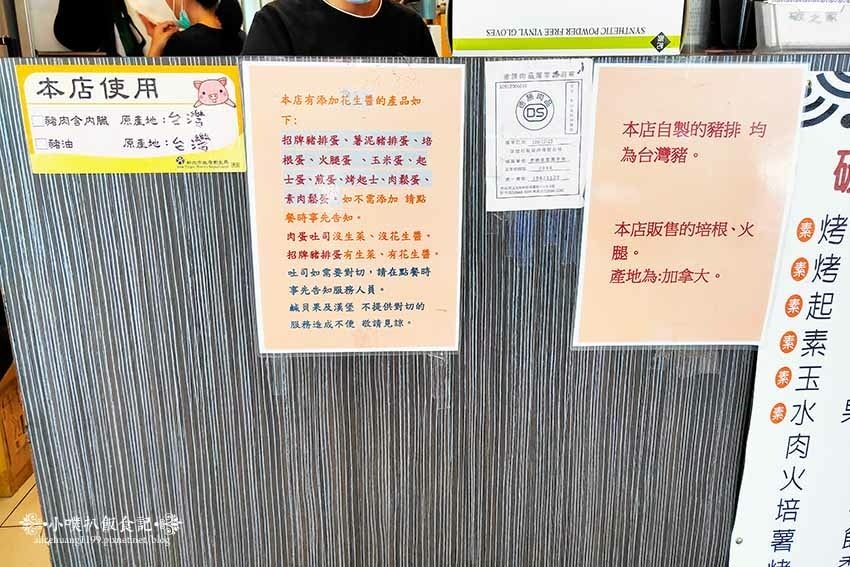 SYNTHETIC POWDER FREE VINYL GLOVES
本店使用
豬肉含內臟 原產地：台灣
豬油 原產地：台灣
本店有添加花生醬的產品如
下:
招牌豬排蛋、薯泥豬排蛋、培
根蛋、火腿蛋 、玉米蛋、起
士蛋、煎蛋、烤起士、肉鬆蛋、
素肉鬆蛋。如不需添加 請點
餐時事先告知。
肉蛋吐司沒生菜、沒花生醬。
招牌豬排蛋有生菜、有花生醬。
吐司如需要對切，請在點餐時
事先告知服務人員。
鹹貝果及漢堡 不提供對切的
服務造成不便 敬請見諒。
DS
本店自製的豬排 均
為台灣豬。
本店販售的培根、火
腿。
產地為:加拿大。
素 烤
素 烤
素 起
素 素
素 玉
素 水
肉
火
培
薯
烤
小噗趴飯食記